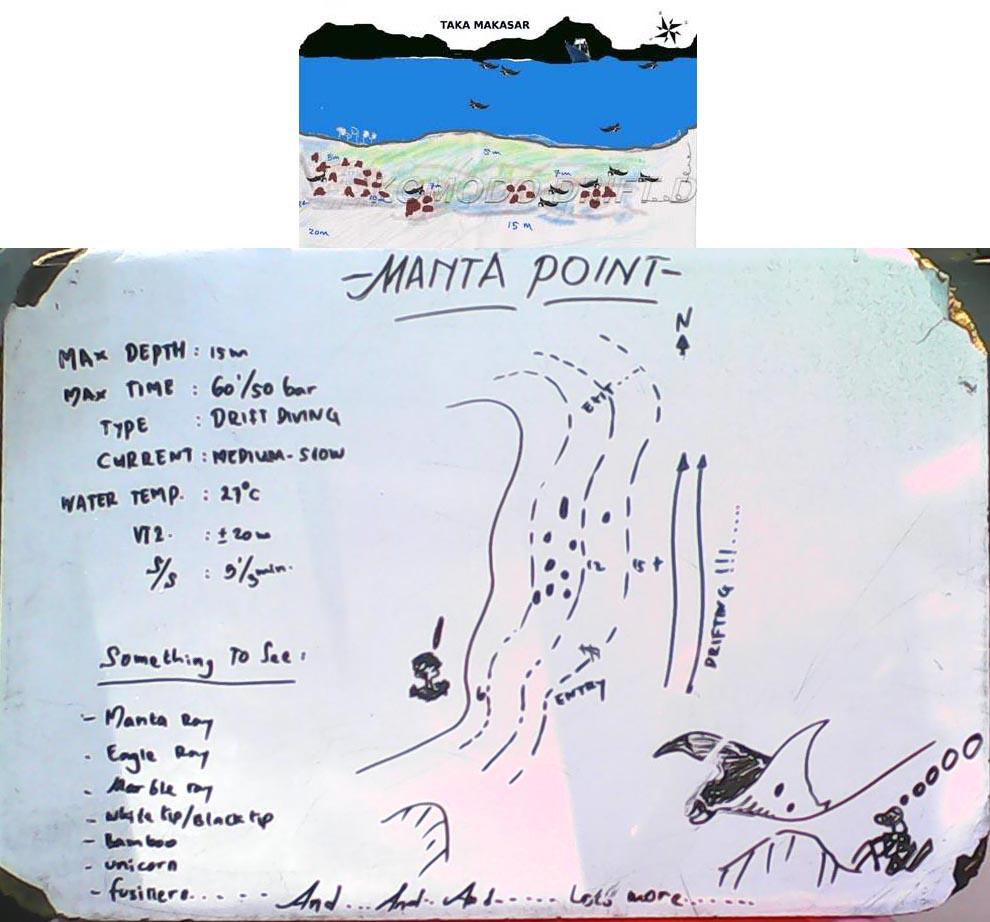 TAKA MAKASAR
5m
5m
7m
7m
10m
15 m
20m
KOMODO DRIFT.D
-MANTA POINT-
N
MAX DEPTH : 15m
MAX TIME : 60'/50 bar
TYPE : DRIFT DIVING
CURRENT : MEDIUM-SLOW
WATER TEMP. : 27°C
± 20m
S/S : 5'/3min.
EXIT
12
15 +
DRIFTING !!!.....
6
ENTRY
Something To See :
- Manta Ray
- Eagle Ray
- Marble ray
- white tip/Black tip
- Bamboo
- unicorn
- fusinero..... - And...And..And..... Lots more.......